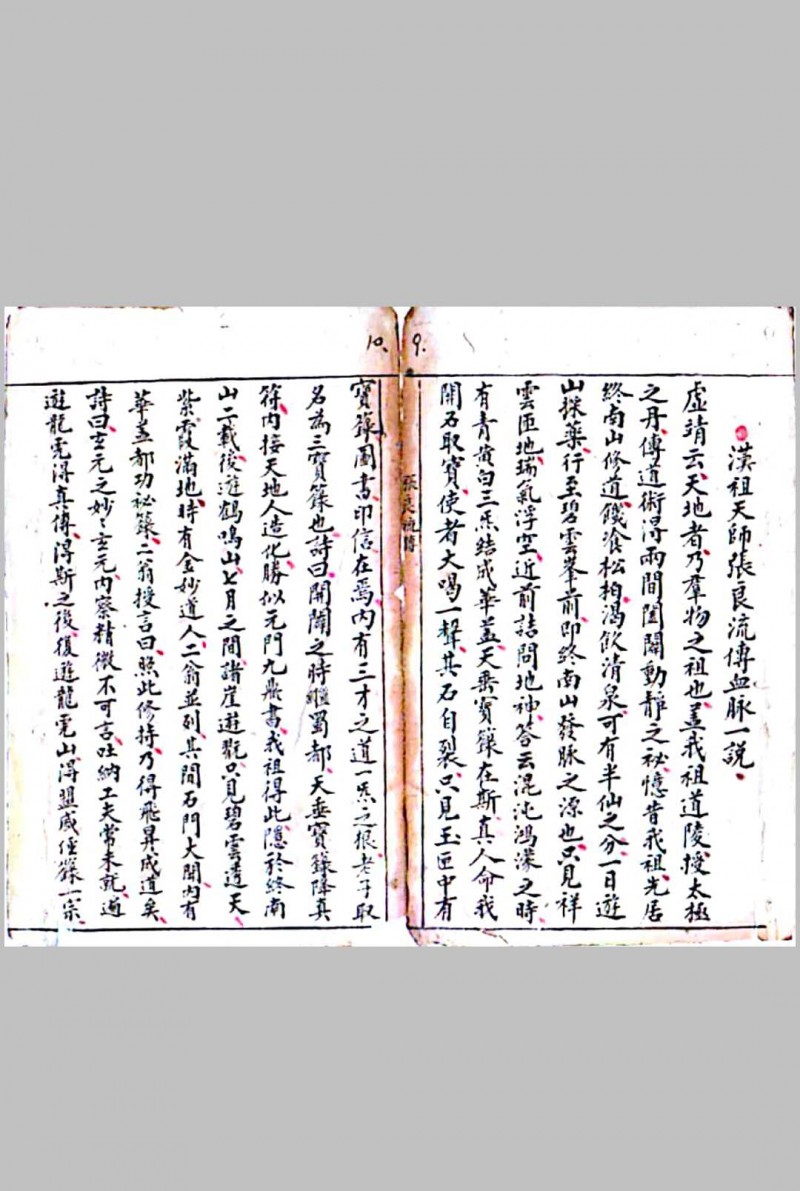 漢祖天師張良流傳血脉一説
虛靖云天地者乃羣物之祖也盖我祖道陵授太極
之丹傳道術得兩間闔闢動靜之祕憶昔我祖先居
終南山修道饑飡松柏渴飲清泉可有半仙之分一日遊
山採藥行至碧雲峯前即終南山發脉之源也只見祥
雲匝地瑞氣浮空近前詰問地神答云混沌鴻濛之時
有青黃白三炁結成華盖天垂寶籙在斯真人命我
開石取寶使者大喝一聲其石自裂只見玉匣中有
9.
張良
10.
寶籙圖書印信在焉内有三才之道一炁之根老子取
名為三寶籙也詩曰開闢之時蜀都天垂寶籙降真
符内接天地人造化勝似元門九鼎書我祖得此隱於終南
山二載後遊鶴鳴山七月之間諸崖遊觀只見碧雲遮天
紫霞滿地時有金妙道人二翁並列其間石門大開内有
華盖都功祕籙二翁授言曰照此修持乃得飛昇成道矣
詩曰玄元之妙妙玄元内察精微不可言吐納工夫常未就
遊龍虎得真傳得斯之後復遊龍虎山得盟威經籙一宗